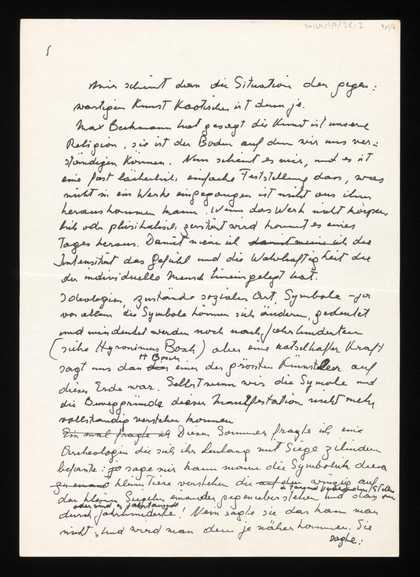 Mir scheint dass die Situation der gegen:
wärtigen Kunst Kaotischer ist denn je.
Max Beckmann hat gesagt die Kunst ist unsere
Religion, sie ist der Boden auf dem wir uns ver:
ständigen Können. Nun scheint es mir, und es ist
eine fast lächerlich einfache Feststellung das, was
nicht in ein Werke eingegangen ist nicht aus ihm
herauskommen kann. Wenn das Werk nicht körper
lich oder phisikalisch zerstört wird kommt es eines
Tages heraus. Damit meine ich die
Intensität das Gefühl und die Wahrhaftigkeit die
der individuelle Mensch hineingelegt hat.
Ideologien, zustände sozialer Art, Symbole – ja
vor allem die Symbole können sich ändern, gedeutet
und missdeutet werden noch nach Jahrhunderten
(siehe Hyronimus Bosch) aber eine rätselhafte Kraft
sagt uns das H. Bosch einer der grössten Künstler auf
dieser Erde war. Selbst wenn wir die Symbole und
die Beweggründe dieser Manifestation nicht mehr
vollständig verstehen können
Diesen Sommer fragte ich eine
Archeologin die sich ihr lenlang mit Siegel zilindern
befasste: sage mir kann man die Symbolik dieser
kleinen Tiere verstehen die
den kleinen Siegeln einander gegenüberstehen und das
durch Jahrhunderte! Nein sagte sie das kann man
nicht, und wird man dem je näher kommen. Sie
sagte: